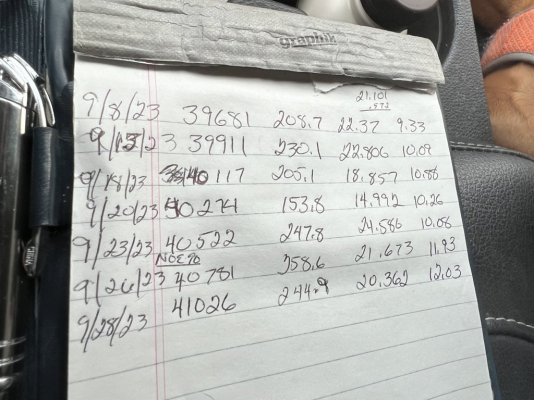 graphik
21.101
.573
9/8/23 39681 208.7 22.37 9.33
9/13/23 39911 230.1 22.806 10.09
9/18/23 40117 205.1 18.857 10.88
9/20/23 40274 153.8 14.992 10.26
9/23/23 40522 247.8 24.586 10.08
9/26/23 40781 258.6 21.673 11.93
9/28/23 41026 244.9 20.362 12.03